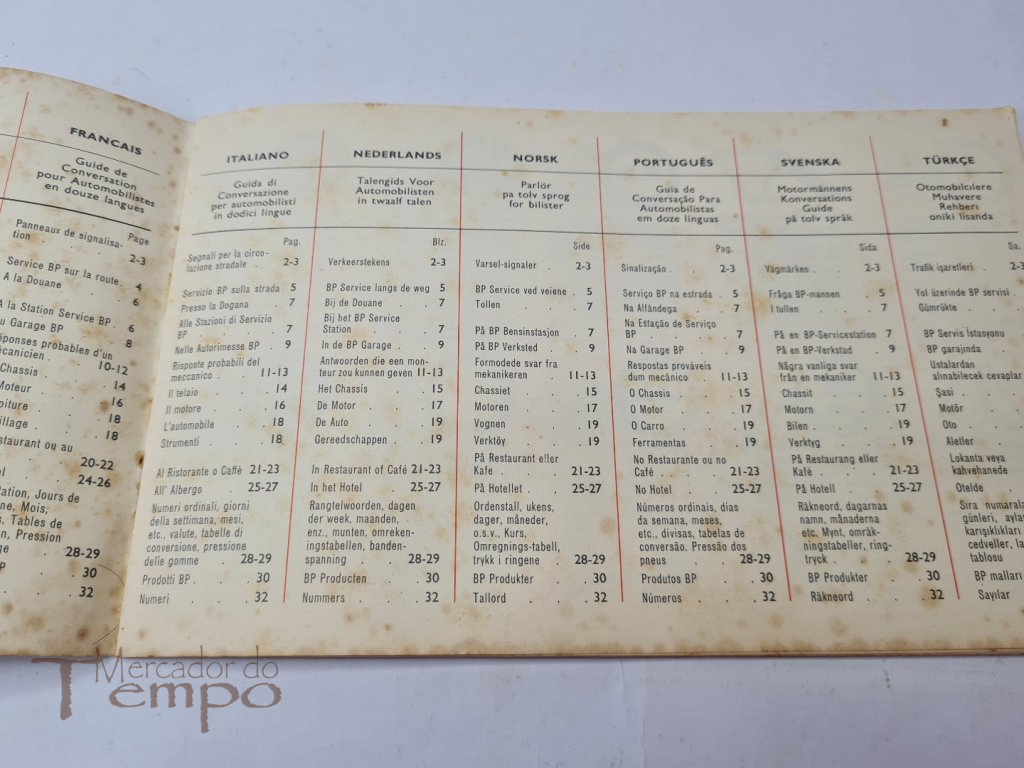 FRANÇAIS
Guide de
Conversation
pour Automobilistes
en douze langues
Page
Panneaux de signalisa-
tion . . . 2-3
Service BP sur la route . 4
A la Douane . . 6
A la Station Service BP . 6
Garage BP . . 8
probables d'un
10-12
Chassis . . 14
Moteur . . 16
18
18
estaurant ou au
20-22
24-26
Jours de
Mois,
Tables de
Pression
28-29
30
32
ITALIANO
Guida di
Conversazione
per automobilisti
in dodici lingue
Pag.
Segnali per la circo-
lazione stradale . . 2-3
Servizio BP sulla strada 5
Presso la Dogana . 7
Alle Stazioni di Servizio
BP . . . . 7
Nelle Autorimesse BP . 9
Risposte probabili del
meccanico . . 11-13
Il telaio . . . 14
Il motore . . . 16
L'automobile . . 18
Strumenti . . 18
Al Ristorante o Caffè 21-23
All' Albergo . . 25-27
Numeri ordinali, giorni
della settimana, mesi,
etc., valute, tabelle di
conversione, pressione
delle gomme . 28-29
Prodotti BP . . . 30
Numeri . . . 32
NEDERLANDS
Talengids Voor
Automobilisten
in twaalf talen
Blz.
Verkeerstekens . 2-3
BP Service langs de weg 5
Bij de Douane . . 7
Bij het BP Service
Station . . . 7
In de BP Garage . . 9
Antwoorden die een mon-
teur zou kunnen geven 11-13
Het Chassis . . 15
De Motor . . 17
De Auto . . . 19
Gereedschappen . 19
In Restaurant of Café 21-23
In het Hotel . 25-27
Rangtelwoorden, dagen
der week, maanden,
enz., munten, omreken-
ingstabellen, banden-
spanning . . 28-29
BP Producten . . 30
Nummers . . . 32
NORSK
Parlör
pa tolv sprog
for bilister
Side
Varsel-signaler . . 2-3
BP Service ved veiene . 5
Tollen . . . 7
På BP Bensinstasjon . 7
På BP Verksted . . 9
Formodede svar fra
mekanikeren . 11-13
Chassiet . . . 15
Motoren . . . 17
Vognen . . . 19
Verktöy . . . 19
På Restaurant eller
Kafe . . . 21-23
På Hotellet . . 25-27
Ordenstall, ukens,
dager, måneder,
o.s.v., Kurs,
Omregnings-tabell,
trykk i ringene . 28-29
BP Produkter . . 30
Tallord . . . 32
PORTUGUÊS
Guia de
Conversação Para
Automobilistas
em doze línguas
Pag.
Sinalização . . 2-3
Serviço BP na estrada . 5
Na Alfândega . . 7
Na Estação de Serviço
BP . . . . 7
Na Garage BP . . 9
Respostas prováveis
dum mecânico . 11-13
O Chassis . . . 15
O Motor . . . 17
O Carro . . . 19
Ferramentas . . 19
No Restaurante ou no
Café . . . 21-23
No Hotel . . 25-27
Números ordinais, dias
da semana, meses,
etc., divisas, tabelas de
conversão. Pressão dos
pneus . . 28-29
Produtos BP . . 30
Números . . . 32
SVENSKA
Motormännens
Konversations
Guide
på tolv språk
Sida
Vägmärken . . 2-3
Fråga BP-mannen . 5
I tullen . . . 7
På en BP-Servicestation 7
På en BP-Verkstad . 9
Några vanliga svar
från en mekaniker 11-13
Chassit . . . 15
Motorn . . . 17
Bilen . . . 19
Verktyg . . . 19
På Restaurang eller
Kafé . . . 21-23
På Hotell . . 25-27
Räkneord, dagarnas
namn, månaderna
etc. Mynt, omräk-
ningstabeller, ring-
tryck . . 28-29
BP Produkter . . 30
Räkneord . . 32
TÜRKÇE
Otomobilcilere
Muhavere
Rehberi
oniki lisanda
Sa.
Trafik işaretleri . 2-3
Yol üzerinde BP servisi .
Gümrükte . .
BP Servis İstasyonu
BP garajında .
Ustalardan
alınabilecek cevaplar
Şasi . . .
Motör . . .
Oto . . .
Aletler . .
Lokanta veya
kahvehanede
Otelde . .
Sira numaralar
günleri,
karışıklıkları
cedveller,
tablosu
BP mallari
Sayılar
Mercador do
Tempo